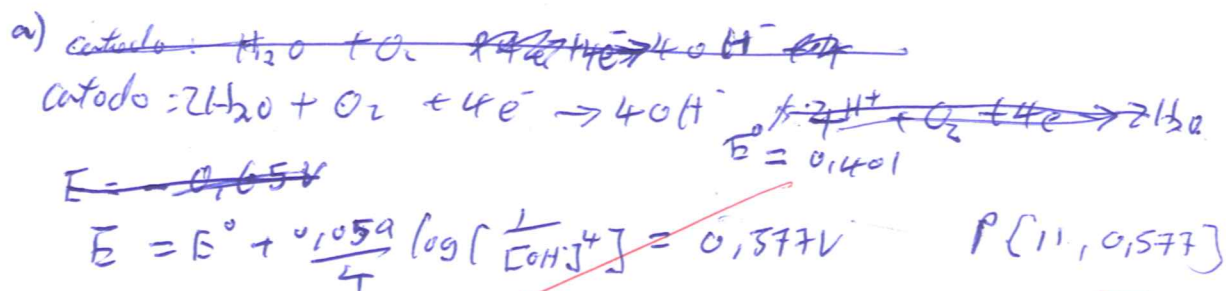 a) catodo: H₂O + O₂ + 4e⁻ → 4OH⁻
catodo: 2H₂O + O₂ + 4e⁻ → 4OH⁻ 4H⁺ + O₂ + 4e → 2H₂O
E⁰ = 0,401
E = -0,65V
E = E⁰ + 0,059/4 log[1/[OH]⁴] = 0,577V P{11, 0,577}